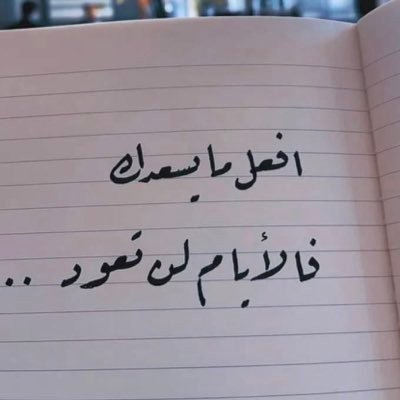 افعل ما يسعدك
فالأيام لن تعود ..